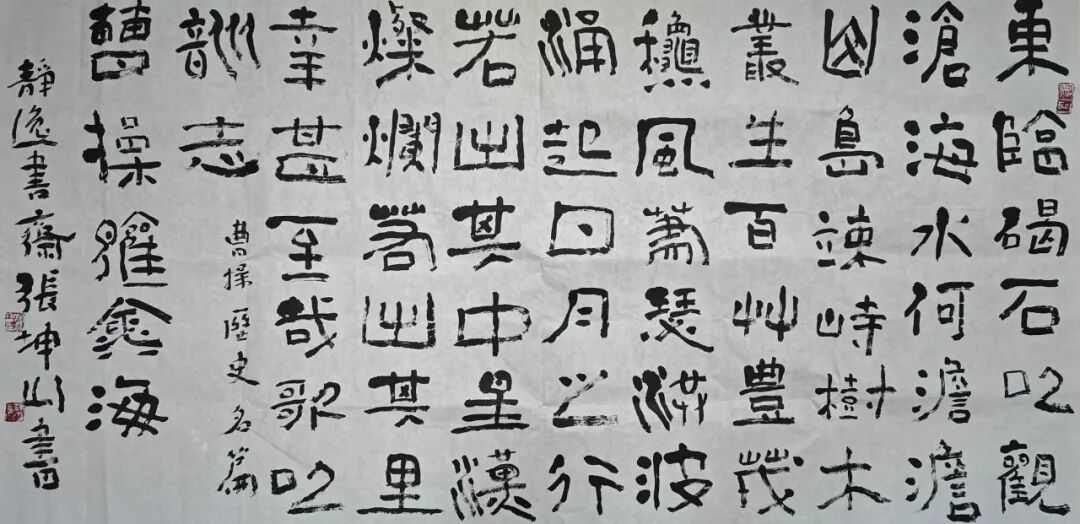 東臨碣石以觀
滄海水何澹澹
山島竦峙樹木
叢生百艸豐茂
龝風蕭瑟洪波
涌起日月之行
若出其中星漢
燦爛若出其里
幸甚至哉歌以
詠志
曹操歷史名篇
曹操觀滄海
靜逸書齋張坤山書